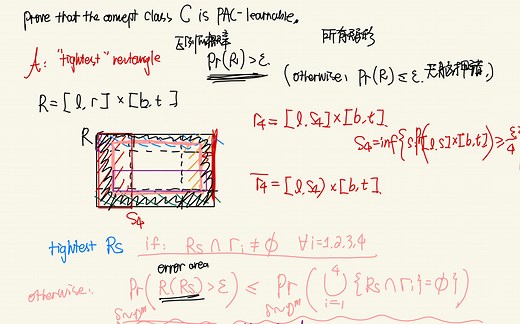 prove that the concept class C is PAC-learnable.
所有矩形
A: "tightest" rectangle
Pr(R) > ε.
(otherwise: Pr(R) ≤ ε.
R = [l, r] × [b, t]
r4 = [l, S4] × [b, t].
S4 = inf{s: Pr([l, s] × [b, t]) ≥ ε/4
R
r̄4 = [l, S4) × [b, t].
S4
tightest Rs if: Rs ∩ ri ≠ ∅ ∀i=1,2,3,4
error area
otherwise: Pr(R(Rs) > ε) ≤ Pr(⋃ {Rs ∩ ri = ∅})
S~Dᵐ S~Dᵐ i=1 4